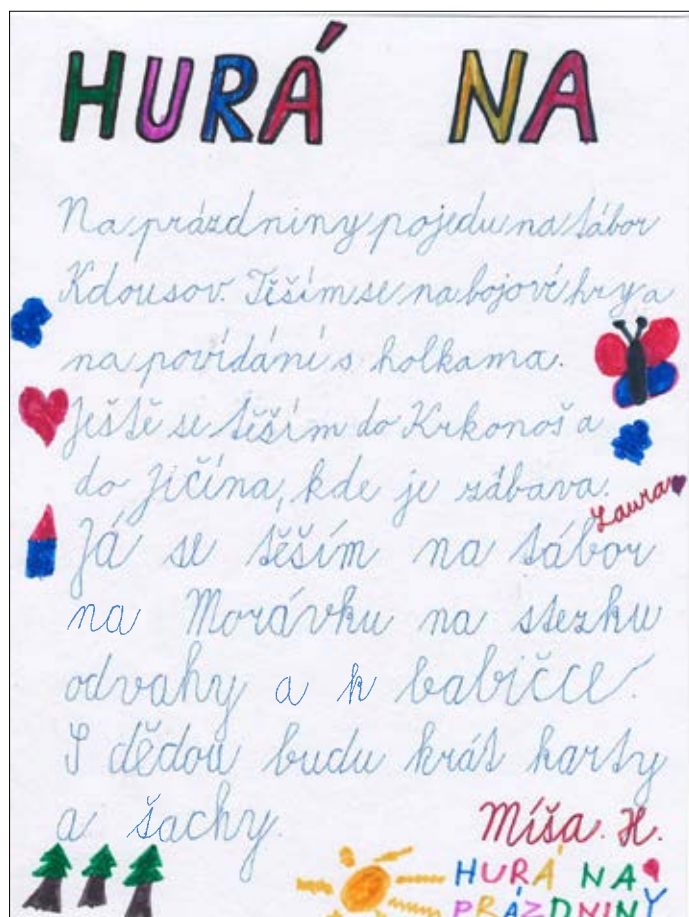 HURÁ NA
Na prázdniny pojedu na tábor
Kdousov. Těším se na bojové hry a
na povídání s holkama.
Ještě se těším do Krkonoš a
do Jičína, kde je zábava.
Laura
Já se těším na tábor
na Morávku na stezku
odvahy a k babičce.
S dědou budu hrát karty
a šachy.
Míša. H.
HURÁ NA
PRÁZDNINY